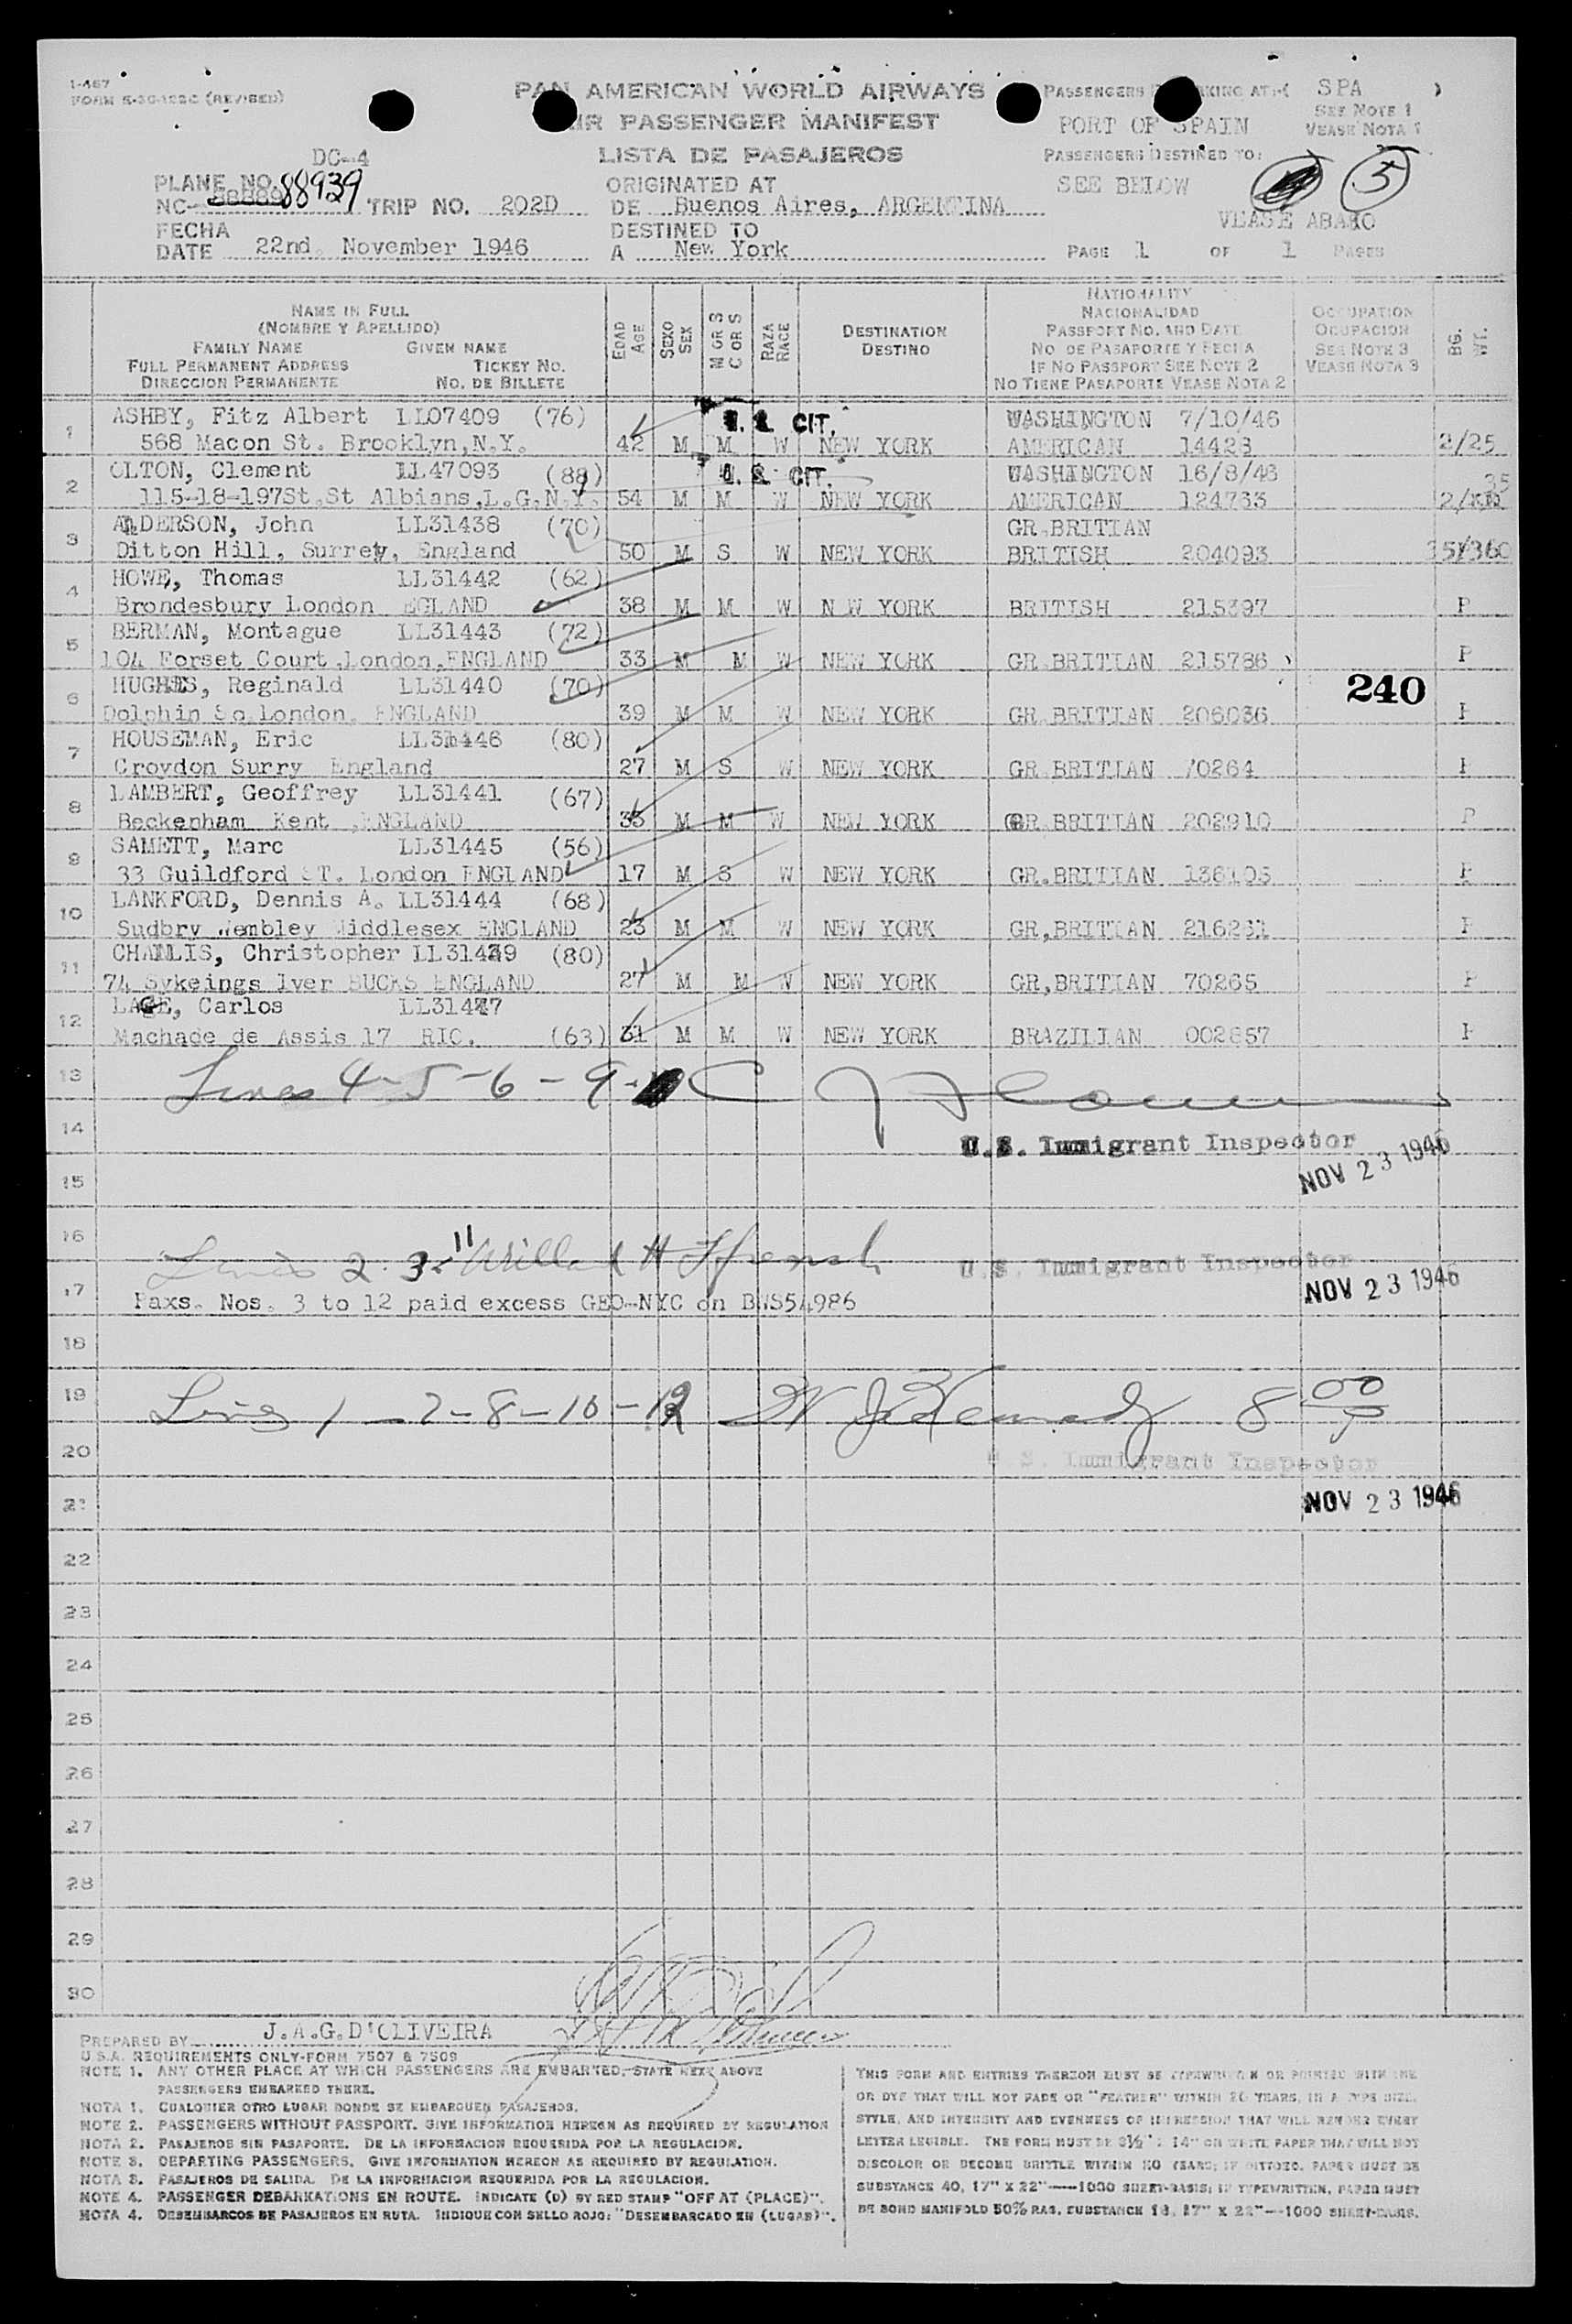 1-467
FORM 5-30-122C (REVISED)
PAN AMERICAN WORLD AIRWAYS
AIR PASSENGER MANIFEST
LISTA DE PASAJEROS
PASSENGERS EMBARKING AT:-( SPA )
SEE NOTE 1
VEASE NOTA 1
PORT OF SPAIN
PASSENGERS DESTINED TO:
SEE BELOW 5
VEASE ABAJO
DC-4
PLANE NO. 88939
NC- TRIP NO. 202D
ORIGINATED AT
DE Buenos Aires, ARGENTINA
FECHA
DATE 22nd. November 1946
DESTINED TO
A New York
PAGE 1 OF 1 PAGES
NAME IN FULL
(NOMBRE Y APELLIDO)
FAMILY NAME GIVEN NAME
FULL PERMANENT ADDRESS TICKET NO.
DIRECCION PERMANENTE NO. DE BILLETE
EDAD AGE
SEXO SEX
M OR S C OR S
RAZA RACE
DESTINATION
DESTINO
NATIONALITY
NACIONALIDAD
PASSPORT NO. AND DATE
NO DE PASAPORTE Y FECHA
IF NO PASSPORT SEE NOTE 2
NO TIENE PASAPORTE VEASE NOTA 2
OCCUPATION
OCUPACION
SEE NOTE 3
VEASE NOTA 3
BG. WT.
1 ASHBY, Fitz Albert LL07409 (76) U. S. CIT. WASHINGTON 7/10/46
568 Macon St. Brooklyn,N.Y. 42 M M W NEW YORK AMERICAN 14423 2/25
2 OLTON, Clement LL47093 (88) U. S. CIT. WASHINGTON 16/8/46
115-18-197St.St Albians,L.G.N.Y. 54 M M W NEW YORK AMERICAN 124733 2/ 35
3 ANDERSON, John LL31438 (70) GR.BRITIAN
Ditton Hill, Surrey, England 50 M S W NEW YORK BRITISH 204093 15/360
4 HOWE, Thomas LL31442 (62)
Brondesbury London EGLAND 38 M M W N W YORK BRITISH 215397 P
5 BERMAN, Montague LL31443 (72)
104 Forset Court,London,ENGLAND 33 M M W NEW YORK GR.BRITIAN 215786 P
6 HUGHES, Reginald LL31440 (70) 240
Dolphin Sq.London. ENGLAND 39 M M W NEW YORK GR.BRITIAN 206036 P
7 HOUSEMAN, Eric LL31446 (80)
Croydon Surry England 27 M S W NEW YORK GR.BRITIAN 70264 P
8 LAMBERT, Geoffrey LL31441 (67)
Beckenham Kent ,ENGLAND 35 M M W NEW YORK GR.BRITIAN 202910 P
9 SAMETT, Marc LL31445 (56)
33 Guildford ST. London ENGLAND 17 M S W NEW YORK GR.BRITIAN 136105 P
10 LANKFORD, Dennis A. LL31444 (68)
Sudbry Wembley Middlesex ENGLAND 23 M M W NEW YORK GR,BRITIAN 216231 P
11 CHALLIS, Christopher LL31439 (80)
74 Sykeings Iver BUCKS ENGLAND 27 M M W NEW YORK GR,BRITIAN 70265 P
12 LAGE, Carlos LL31447
Machade de Assis 17 RIO. (63) 31 M M W NEW YORK BRAZILIAN 002857 P
13 Lines 4-5-6-9-
14 U.S. Immigrant Inspector
NOV 23 1946
15
16
Lines 2 3. 11 Willard H French U.S. Immigrant Inspector
17 NOV 23 1946
Paxs. Nos. 3 to 12 paid excess GEO-NYC on BWS54986
18
19 Lines 1-7-8-10-12 W J Kennedy 8 00 P
20 U.S. Immigrant Inspector
21 NOV 23 1946
22
23
24
25
26
27
28
29
30
PREPARED BY J.A.G.D'OLIVEIRA
U.S.A. REQUIREMENTS ONLY-FORM 7507 & 7509
NOTE 1. ANY OTHER PLACE AT WHICH PASSENGERS ARE EMBARKED,-STATE NEXT ABOVE
PASSENGERS EMBARKED THERE.
NOTA 1. CUALQUIER OTRO LUGAR DONDE SE EMBARQUEN PASAJEROS.
NOTE 2. PASSENGERS WITHOUT PASSPORT. GIVE INFORMATION HEREON AS REQUIRED BY REGULATION
NOTA 2. PASAJEROS SIN PASAPORTE. DE LA INFORMACION REQUERIDA POR LA REGULACION.
NOTE 3. DEPARTING PASSENGERS. GIVE INFORMATION HEREON AS REQUIRED BY REGULATION.
NOTA 3. PASAJEROS DE SALIDA. DE LA INFORMACION REQUERIDA POR LA REGULACION.
NOTE 4. PASSENGER DEBARKATIONS EN ROUTE. INDICATE (D) BY RED STAMP "OFF AT (PLACE)".
NOTA 4. DESEMBARCOS DE PASAJEROS EN RUTA. INDIQUE CON SELLO ROJO: "DESEMBARCADO EN (LUGAR)".
THIS FORM AND ENTRIES THEREON MUST BE TYPEWRITTEN OR PRINTED WITH INK
OR DYE THAT WILL NOT FADE OR "FEATHER" WITHIN 20 YEARS, IN A TYPE SIZE,
STYLE, AND INTENSITY AND EVENNESS OF IMPRESSION THAT WILL RENDER EVERY
LETTER LEGIBLE. THE FORM MUST BE 8½" X 14" ON WHITE PAPER THAT WILL NOT
DISCOLOR OR BECOME BRITTLE WITHIN 20 YEARS; IF DITTOED, PAPER MUST BE
SUBSTANCE 40, 17" X 22"-----1000 SHEET-BASIS; IF TYPEWRITTEN, PAPER MUST
BE BOND MANIFOLD 50% RAG, SUBSTANCE 18, 17" X 22"---1000 SHEET-BASIS.